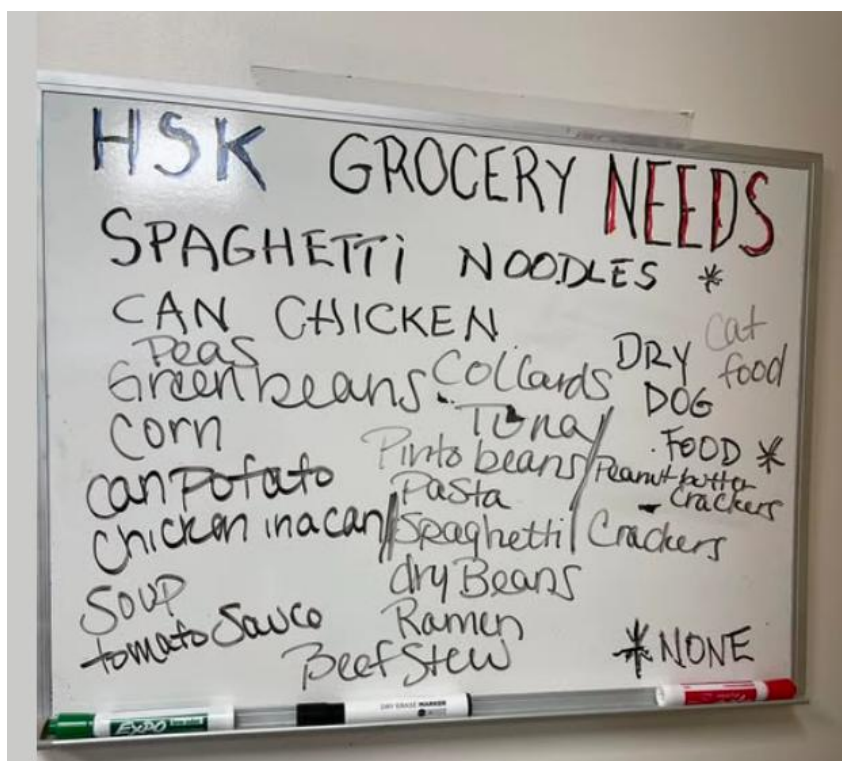 HSK GROCERY NEEDS
SPAGHETTI NOODLES *
CAN CHICKEN
Peas
Green beans
Corn
Can Potato
Chicken in a can
Soup
tomato Sauce
Collards
Tuna
Pinto beans
Pasta
Spaghetti
dry Beans
Ramen
Beef Stew
DRY
DOG
FOOD *
Cat
food
Peanut butter
- Crackers
Crackers
* NONE
EXPO
DRY ERASE MARKER